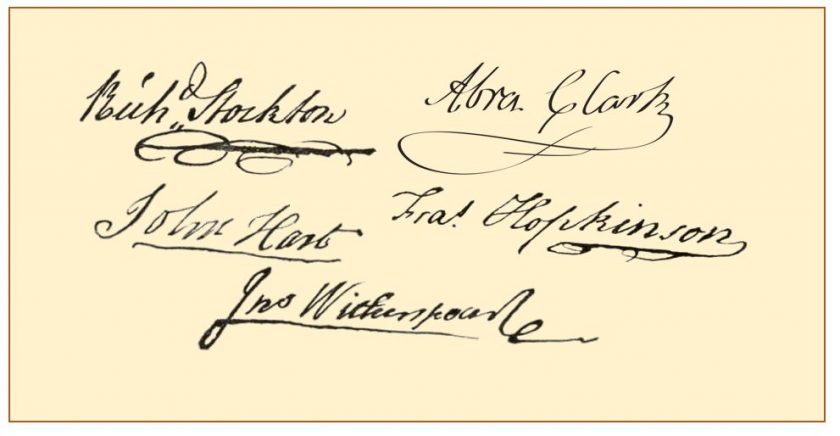 Richd. Stockton
Abra Clark
John Hart
Fras. Hopkinson
Jno Witherspoon